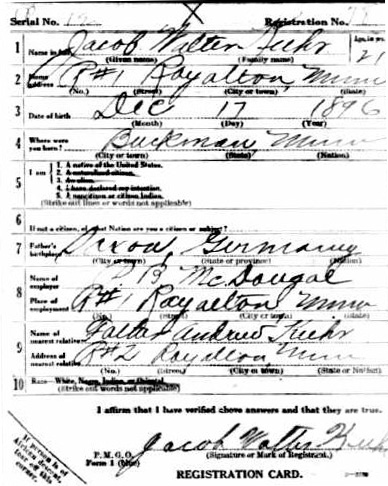 Serial No. Registration No.
1 Jacob Walter Age, in yrs.
Name in full 21
(Given name) (Family name)
2 Home address R#1 Royalton, Minn
(No.) (Street) (City or town) (State)
3 Date of birth Dec 17 1896
(Month) (Day) (Year)
4 Where were you born? Buckman Minn
(City or town) (State) (Nation)
5 I am 1. A native of the United States.
2. A naturalized citizen.
3. An alien.
4. I have declared my intention.
5. A noncitizen or citizen Indian.
(Strike out lines or words not applicable)
6
If not a citizen, of what Nation are you a citizen or subject?
7 Father's birthplace Germany
(City or town) (State or province) (Nation)
8 Name of employer B McDougal
Place of employment R#1 Royalton Minn
(No.) (Street) (City or town) (State)
9 Name of nearest relative Andrew
Address of nearest relative R#2 Royalton, Minn
(No.) (Street) (City or town) (State or Nation)
10 Race—White, Negro, Indian, or Oriental
(Strike out words not applicable)
I affirm that I have verified above answers and that they are true.
Jacob Walter
P. M. G. O. (Signature or Mark of Registrant.)
Form 1 (blue)
REGISTRATION CARD.
If person is of
African descent,
tear off this
corner.